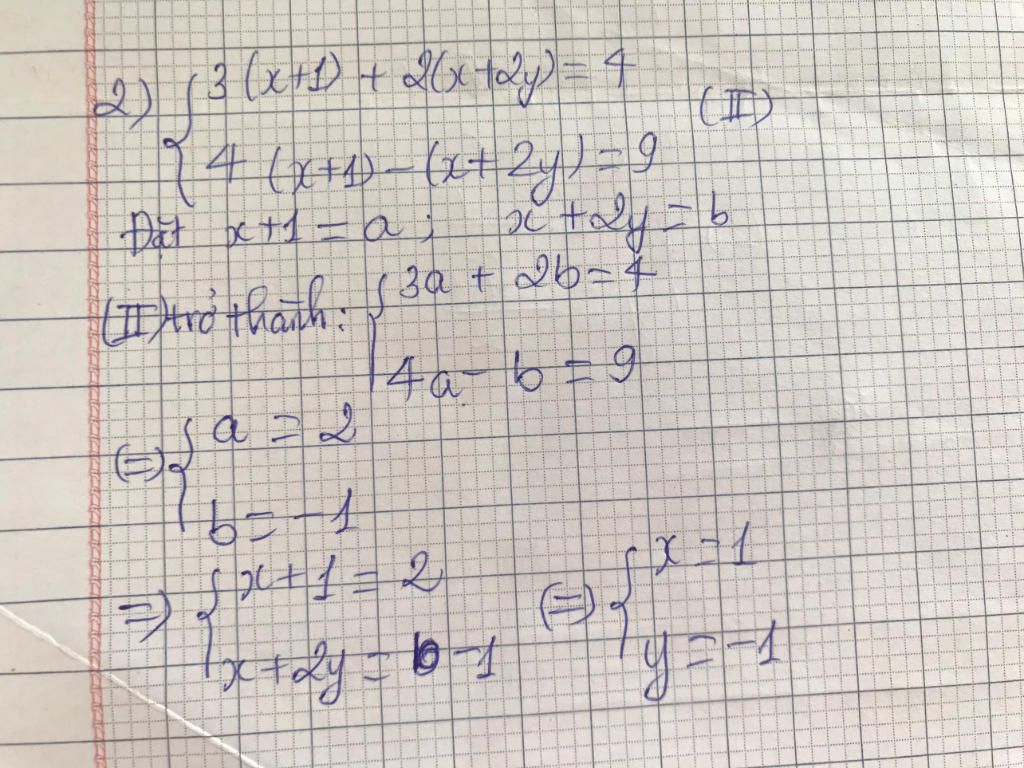 2) { 3(x+1) + 2(x+2y) = 4
4(x+1) - (x+2y) = 9 (II)
Đặt x+1 = a ; x+2y = b
(II) trở thành: { 3a + 2b = 4
4a - b = 9
(=) { a = 2
b = -1
=) { x+1 = 2 (=) { x = 1
x+2y = -1 y = -1